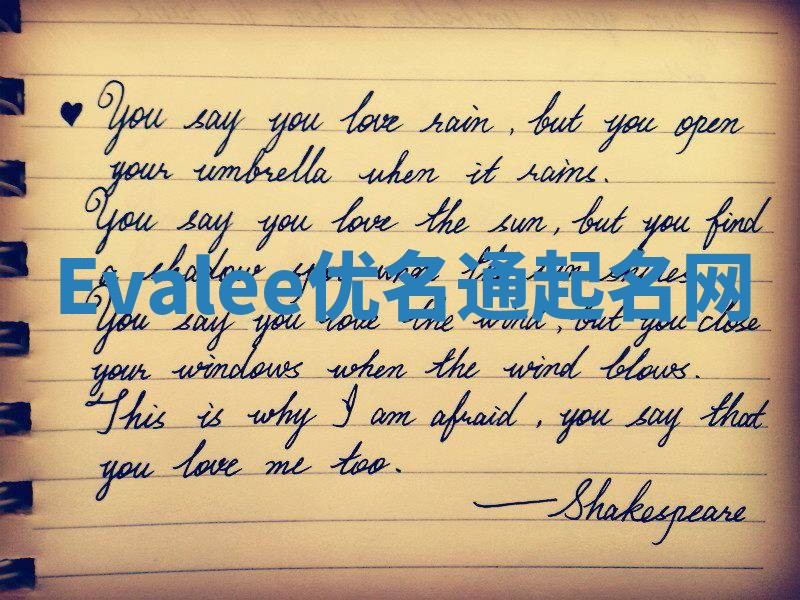 You say you love rain, but you open
your umbrella when it rains.
You say you love the sun, but you find
a shadow spot when the sun shines.
Evalee优名通起名网
You say you love the wind, but you close
your windows when the wind blows.
This is why I am afraid, you say that
you love me too.
—Shakespeare